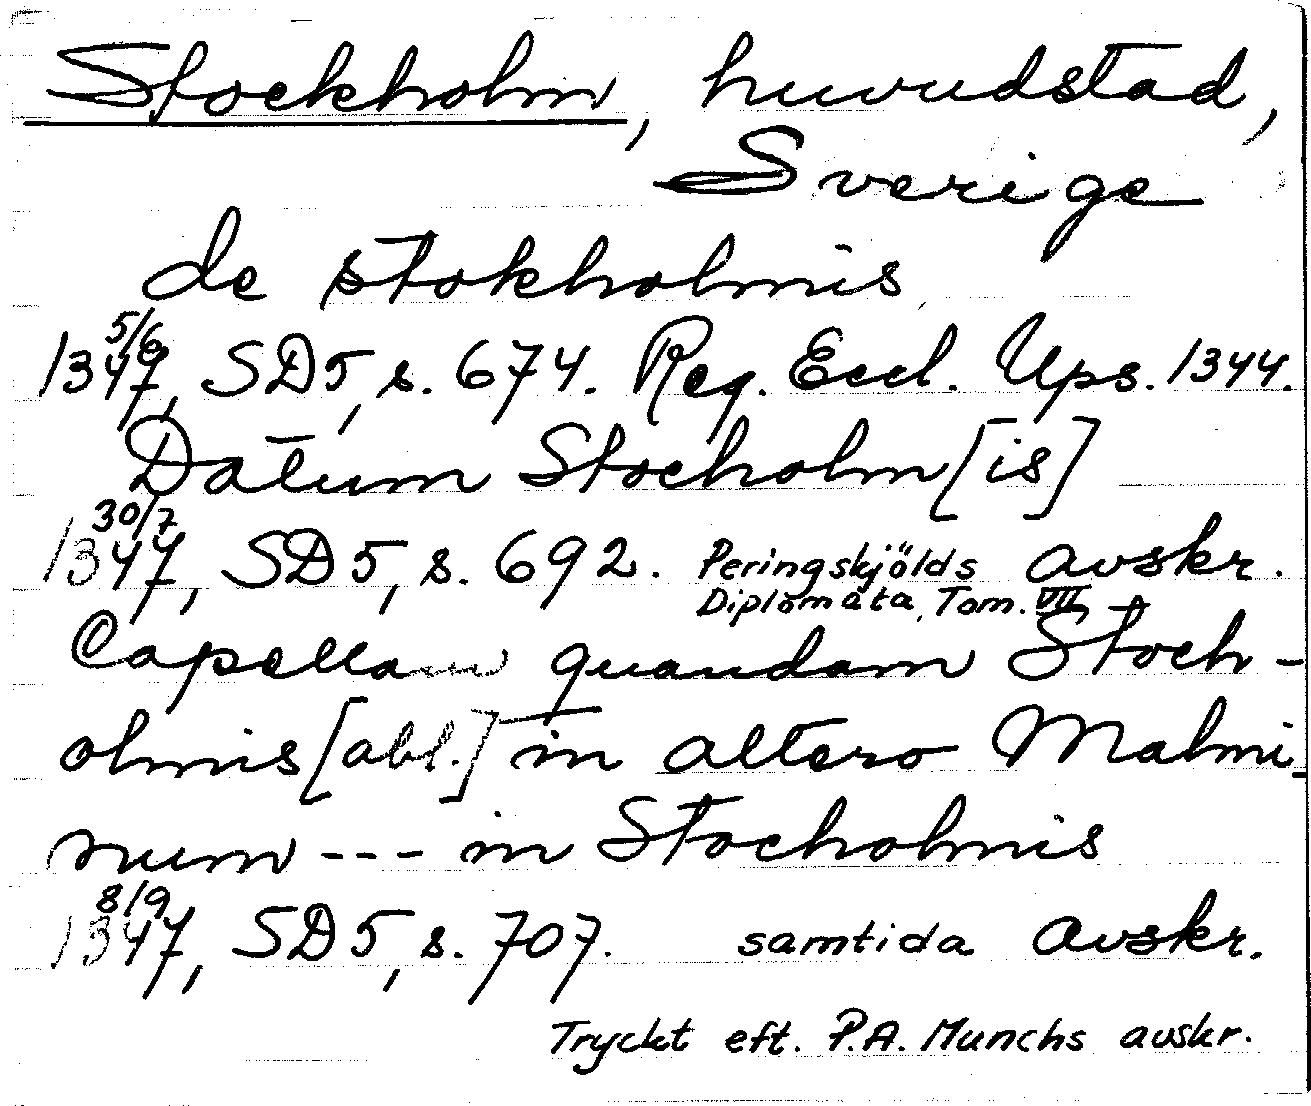 Stockholm, huvudstad,
Sverige
de stokholmis
1347 5/6, SD5, s. 674. Reg. Eccl. Ups. 1344.
Datum Stocholm[is]
1347 30/7, SD5, s. 692. Peringskjölds avskr.
Diplomata, Tom. VII
Capellam quandam Stoch-
olmis [abl.] in altero Malmi-
num --- in Stocholmis
1347 8/9, SD5, s. 707. samtida avskr.
Tryckt eft. P.A. Munchs avskr.